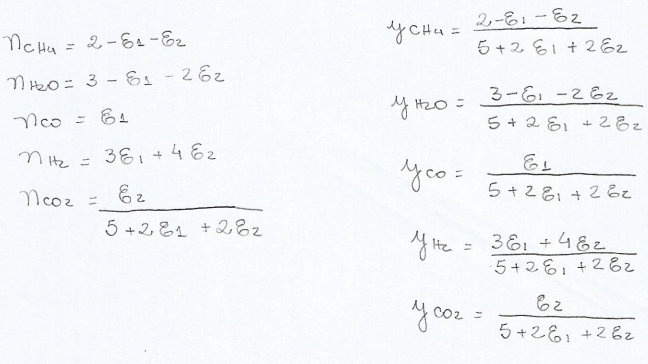 nCH4 = 2 - ε1 - ε2
nH2O = 3 - ε1 - 2ε2
nCO = ε1
nH2 = 3ε1 + 4ε2
nCO2 = ε2
5 + 2ε1 + 2ε2
yCH4 = 2 - ε1 - ε2
5 + 2ε1 + 2ε2
yH2O = 3 - ε1 - 2ε2
5 + 2ε1 + 2ε2
yCO = ε1
5 + 2ε1 + 2ε2
yH2 = 3ε1 + 4ε2
5 + 2ε1 + 2ε2
yCO2 = ε2
5 + 2ε1 + 2ε2